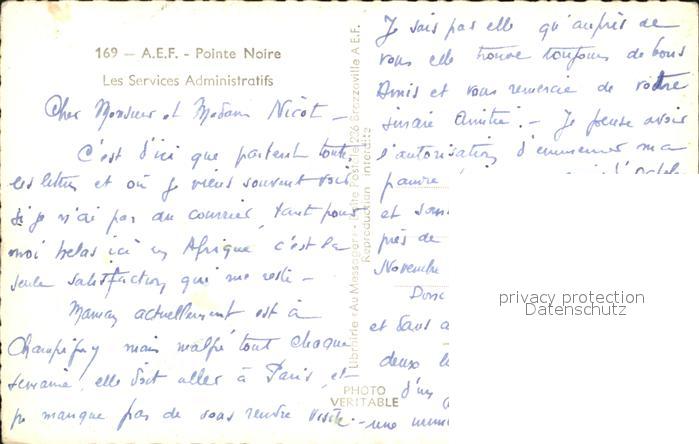 169 — A.E.F. - Pointe Noire
Les Services Administratifs
Cher Monsieur et Madame Nicot —
C'est d'ici que partent toutes
les lettres et où je viens souvent voir
si je n'ai pas du courrier, tant pour
moi helas ici en Afrique, c'est la
seule satisfaction qui me reste —
Maman actuellement est à
mais malgré tout chaque
semaine, elle doit aller à Paris, et
ne manque pas de vous rendre visite. —
Je sais par elle qu'auprès de
vous elle trouve toujours de bons
Amis et vous remercie de votre
sincère Amitié. — Je pense avoir
l'autorisation d'emmener ma
pauvre
et
près de
Novembre
Donc
et dans
deux
d'un
une
Librairie «Au Messager» Boîte Postale 26 Brazzaville A.E.F.
Reproduction interdite
PHOTO
VERITABLE
privacy protection
Datenschutz